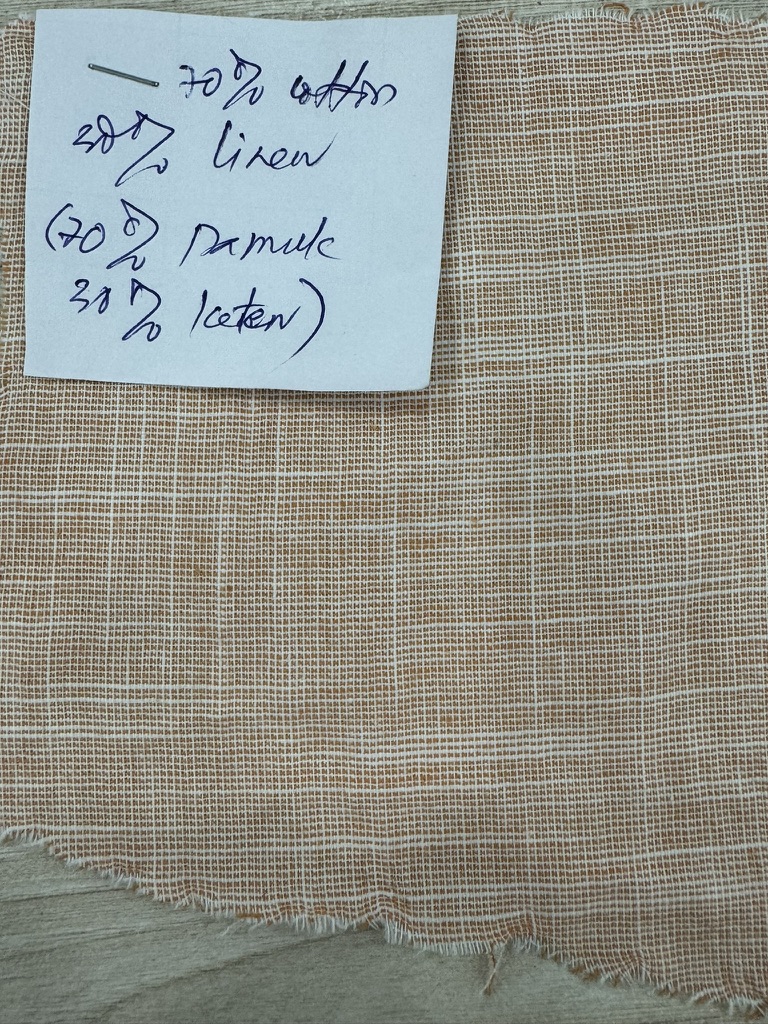 70% cotton
30% linen
(70% Pamuk
30% keten)